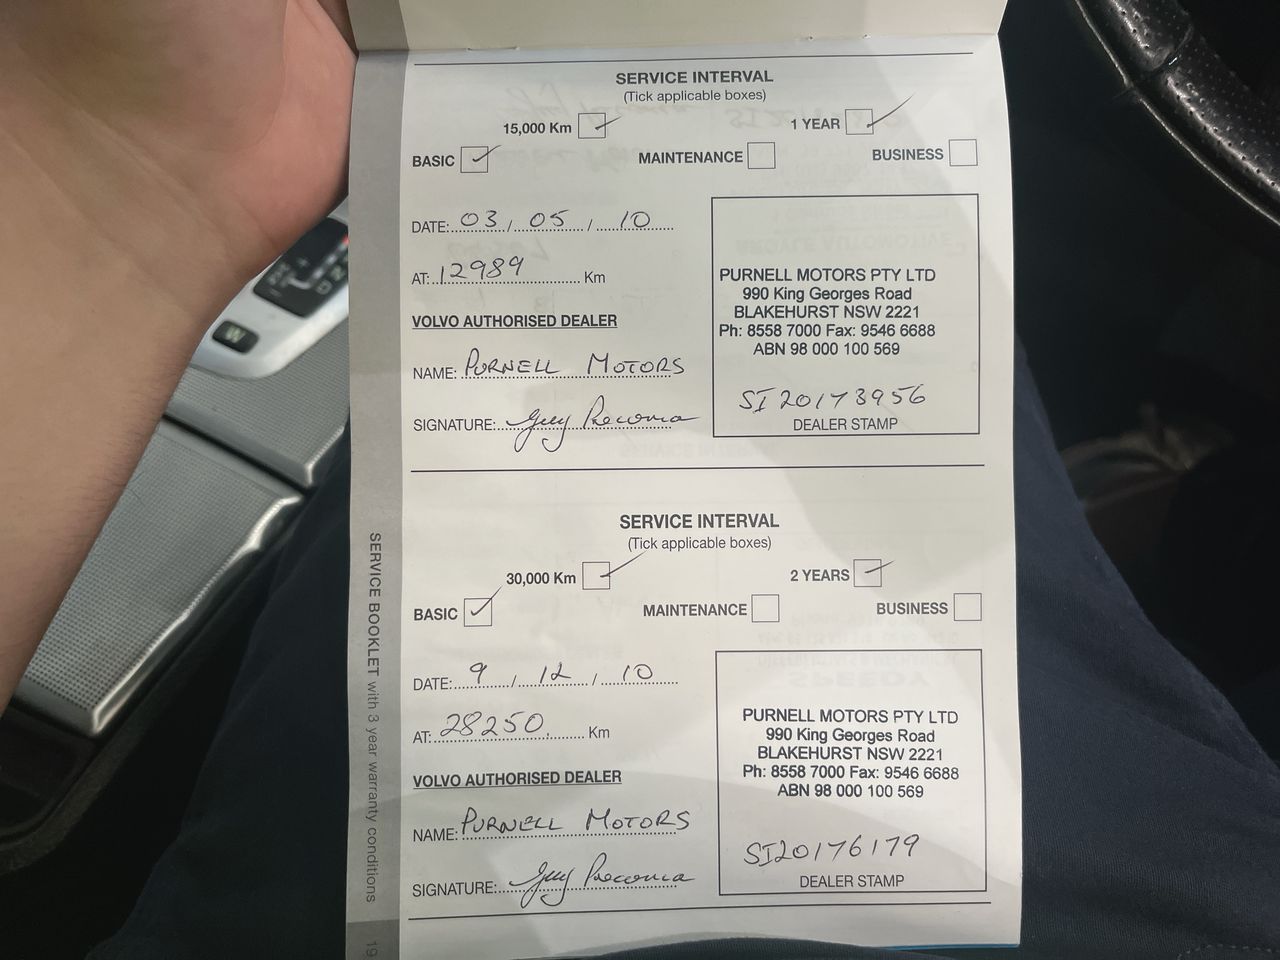 SERVICE INTERVAL
(Tick applicable boxes)
15,000 Km 1 YEAR
BASIC MAINTENANCE BUSINESS
DATE: 03 / 05 / 10
AT: 12989 Km
VOLVO AUTHORISED DEALER
NAME: PURNELL MOTORS
SIGNATURE: Guy
PURNELL MOTORS PTY LTD
990 King Georges Road
BLAKEHURST NSW 2221
Ph: 8558 7000 Fax: 9546 6688
ABN 98 000 100 569
SI20173956
DEALER STAMP
SERVICE INTERVAL
(Tick applicable boxes)
30,000 Km 2 YEARS
BASIC MAINTENANCE BUSINESS
DATE: 9 / 12 / 10
AT: 28250 Km
VOLVO AUTHORISED DEALER
NAME: PURNELL MOTORS
SIGNATURE: Guy
PURNELL MOTORS PTY LTD
990 King Georges Road
BLAKEHURST NSW 2221
Ph: 8558 7000 Fax: 9546 6688
ABN 98 000 100 569
SI20176179
DEALER STAMP
SERVICE BOOKLET with 3 year warranty conditions
19
W